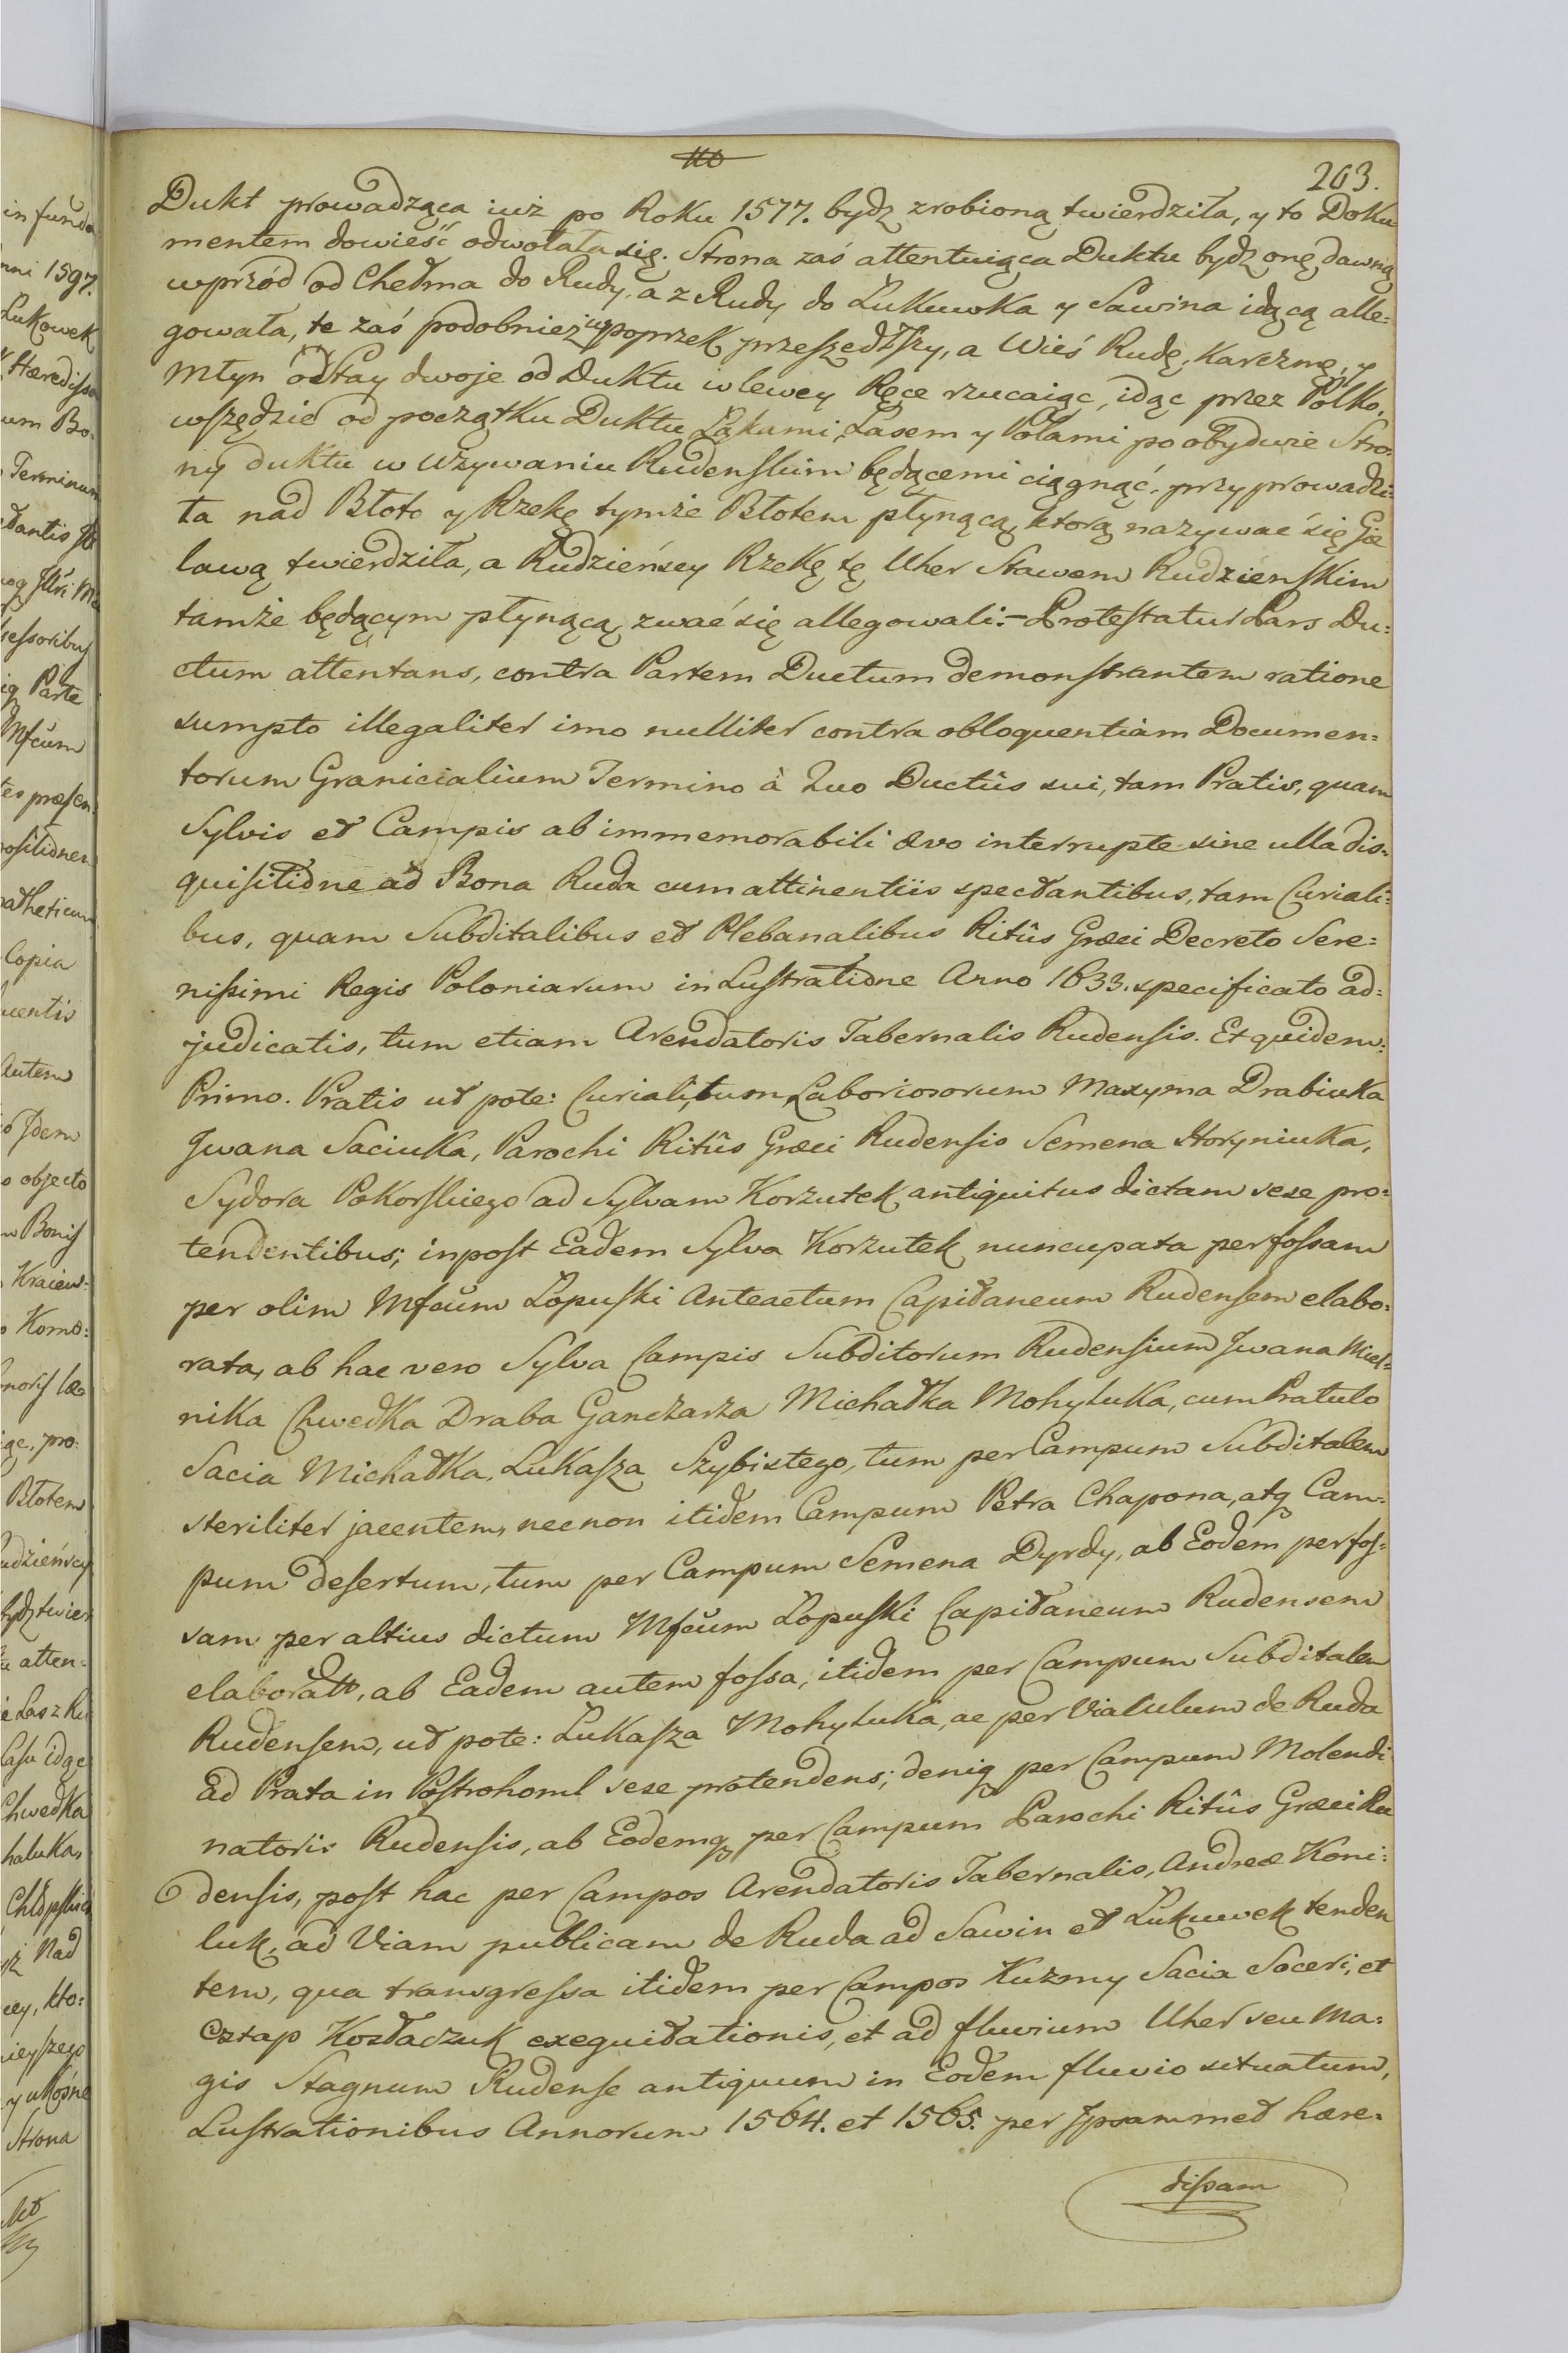 110
203.
Dukt prowadząca iuż po Roku 1577. bydz zrobioną twierdziła, y to Doku
mentem dowieść odwołała się. Strona zaś attentuiąca Duktu bydz onę dawną
wprzód od Chełma do Rudy, a z Rudy do Łukuwka y Sawina idącą alle=
gowała, te zaś podobnież wpoprzek przeszedłszy, a Wieś Rudę, Karczmę, y
Młyn od Stay dwoje od Duktu w lewey Ręce rzucaiąc, idąc przez Polko,
wszędzie od początku Duktu Łąkami, Lasem y Polami po obydwie Stro=
ny duktu w Używaniu Rudenskim będącemi ciągnąć, przyprowadzi=
ła nad Błoto y Rzekę tymże Błotem płynącą, ktorą nazywać się Gie
lawą twierdziła, a Rudzieńscy Rzekę tę Uher Stawem Rudzieńskim
tamże będącym płynącą zwać się allegowali.– Protestatur Pars Du=
ctum attentans, contra Partem Ductum demonstrantem ratione
sumpto illegaliter imo nulliter contra obloquentiam Documen=
torum Granicialium Termino à Quo Ductûs sui, tam Pratis, quam
Sylvis et Campis ab immemorabili ævo interrupte sine ulla dis=
quisitione ad Bona Ruda cum attinentiis spectantibus, tam Curiali=
bus, quam Subditalibus et Plebanalibus Ritûs Græci Decreto Sere=
nissimi Regis Poloniarum in Lustratione Anno 1633. specificato ad=
judicatis, tum etiam Arendatoris Tabernalis Rudensis. Et quidem:
Primo. Pratis ut pote: Curiali, tum Laboriosorum Maxyma Drabiuka
Jwana Saciuka, Parochi Ritûs Græci Rudensis Semena Horyniuka,
Sydora Pokorskiego ad Sylvam Korzutek antiquitus dictam sese pro=
tendentibus; inpost Eadem Sylva Korzutek nuncupata per fossam
per olim Mfcum Łopuski Anteactum Capitaneum Rudensem elabo=
rata, ab hac vero Sylva Campis Subditorum Rudensium Jwana Miel=
nika Chwedka Draba Ganczarza Michałka Mohyluka, cum Pratulo
Sacia Michałka, Łukasza Szybistego, tum per Campum Subditalem
steriliter jacentem, necnon itidem Campum Petra Chapona, atq Cam=
pum desertum, tum per Campum Semena Dyrdy, ab Eodem per fos=
sam per altius dictum Mfcum Łopuski Capitaneum Rudensem
elaborato, ab Eadem autem fossa, itidem per Campum Subditalem
Rudensem, ut pote: Łukasza Mohyluka, ac per Vialulum de Ruda
ad Prata in Postrohoml sese protendens; deniq per Campum Molendi
natoris Rudensis, ab Eodemq per Campum Parochi Ritûs Græci Ru
densis, post hac per Campos Arendatoris Tabernalis, Andreæ Koni=
luk, ad Viam publicam de Ruda ad Sawin et Łukuwek tenden
tem, qua transgressa itidem per Campos Kuzmy Sacia Soceri, et
Cztap Kozłaczuk exequitationis, et ad fluvium Uher seu Ma=
gis Stagnum Rudense antiquum in Eodem fluvio situatum,
Lustrationibus Annorum 1564. et 1565. per Jpsammet hære=
dissam